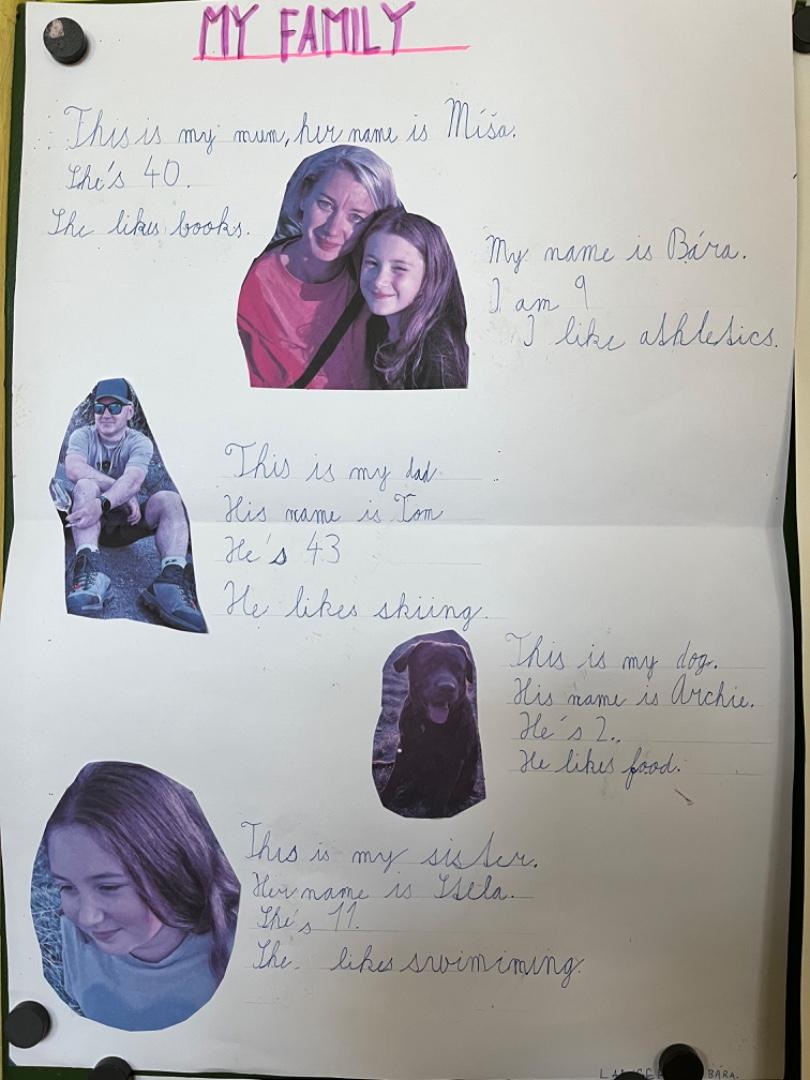 MY FAMILY
This is my mum, her name is Míša.
She's 40.
She likes books.
My name is Bára.
I am 9
I like athletics.
This is my dad.
His name is Tom
He's 43
He likes skiing.
This is my dog.
His name is Archie.
He's 2.
He likes food.
This is my sister.
Her name is
She's 11.
She likes swimiming.
BÁRA.